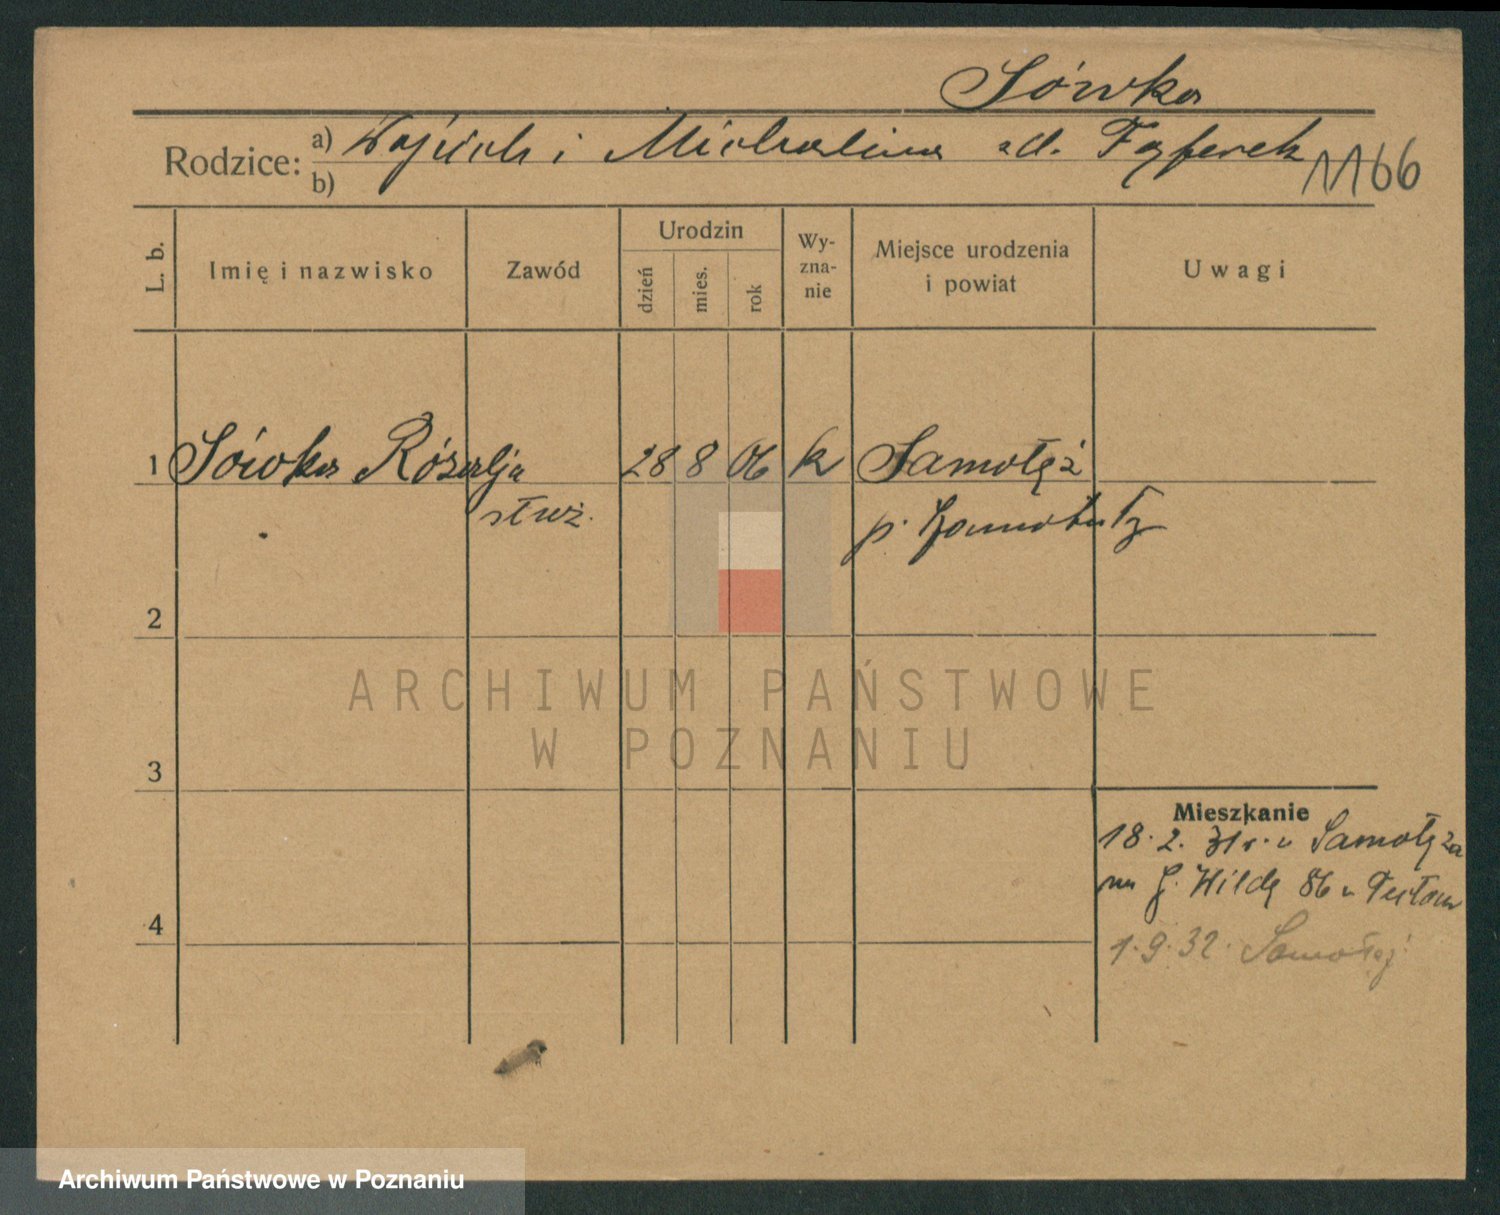 Sówka
Rodzice: a) Wojciech i Michalina zd. Fąferek
b)
1166
L. b.
Imię i nazwisko
Zawód
Urodzin
dzień
mies.
rok
Wy-
zna-
nie
Miejsce urodzenia
i powiat
Uwagi
1 Sówka Rózalja 28 8 06 k Samołęż
służ. p. Szamotuły
2
3
4
Mieszkanie
18. 2. 31 r. z Samołęża
na G. Wildę 86 u
1. 9. 32. Samołęż
ARCHIWUM PAŃSTWOWE
W POZNANIU
Archiwum Państwowe w Poznaniu